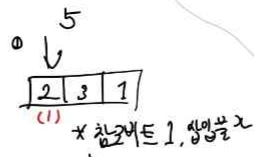 5
①
2 3 1
(1)
* 참조비트 1, 삽입을 x